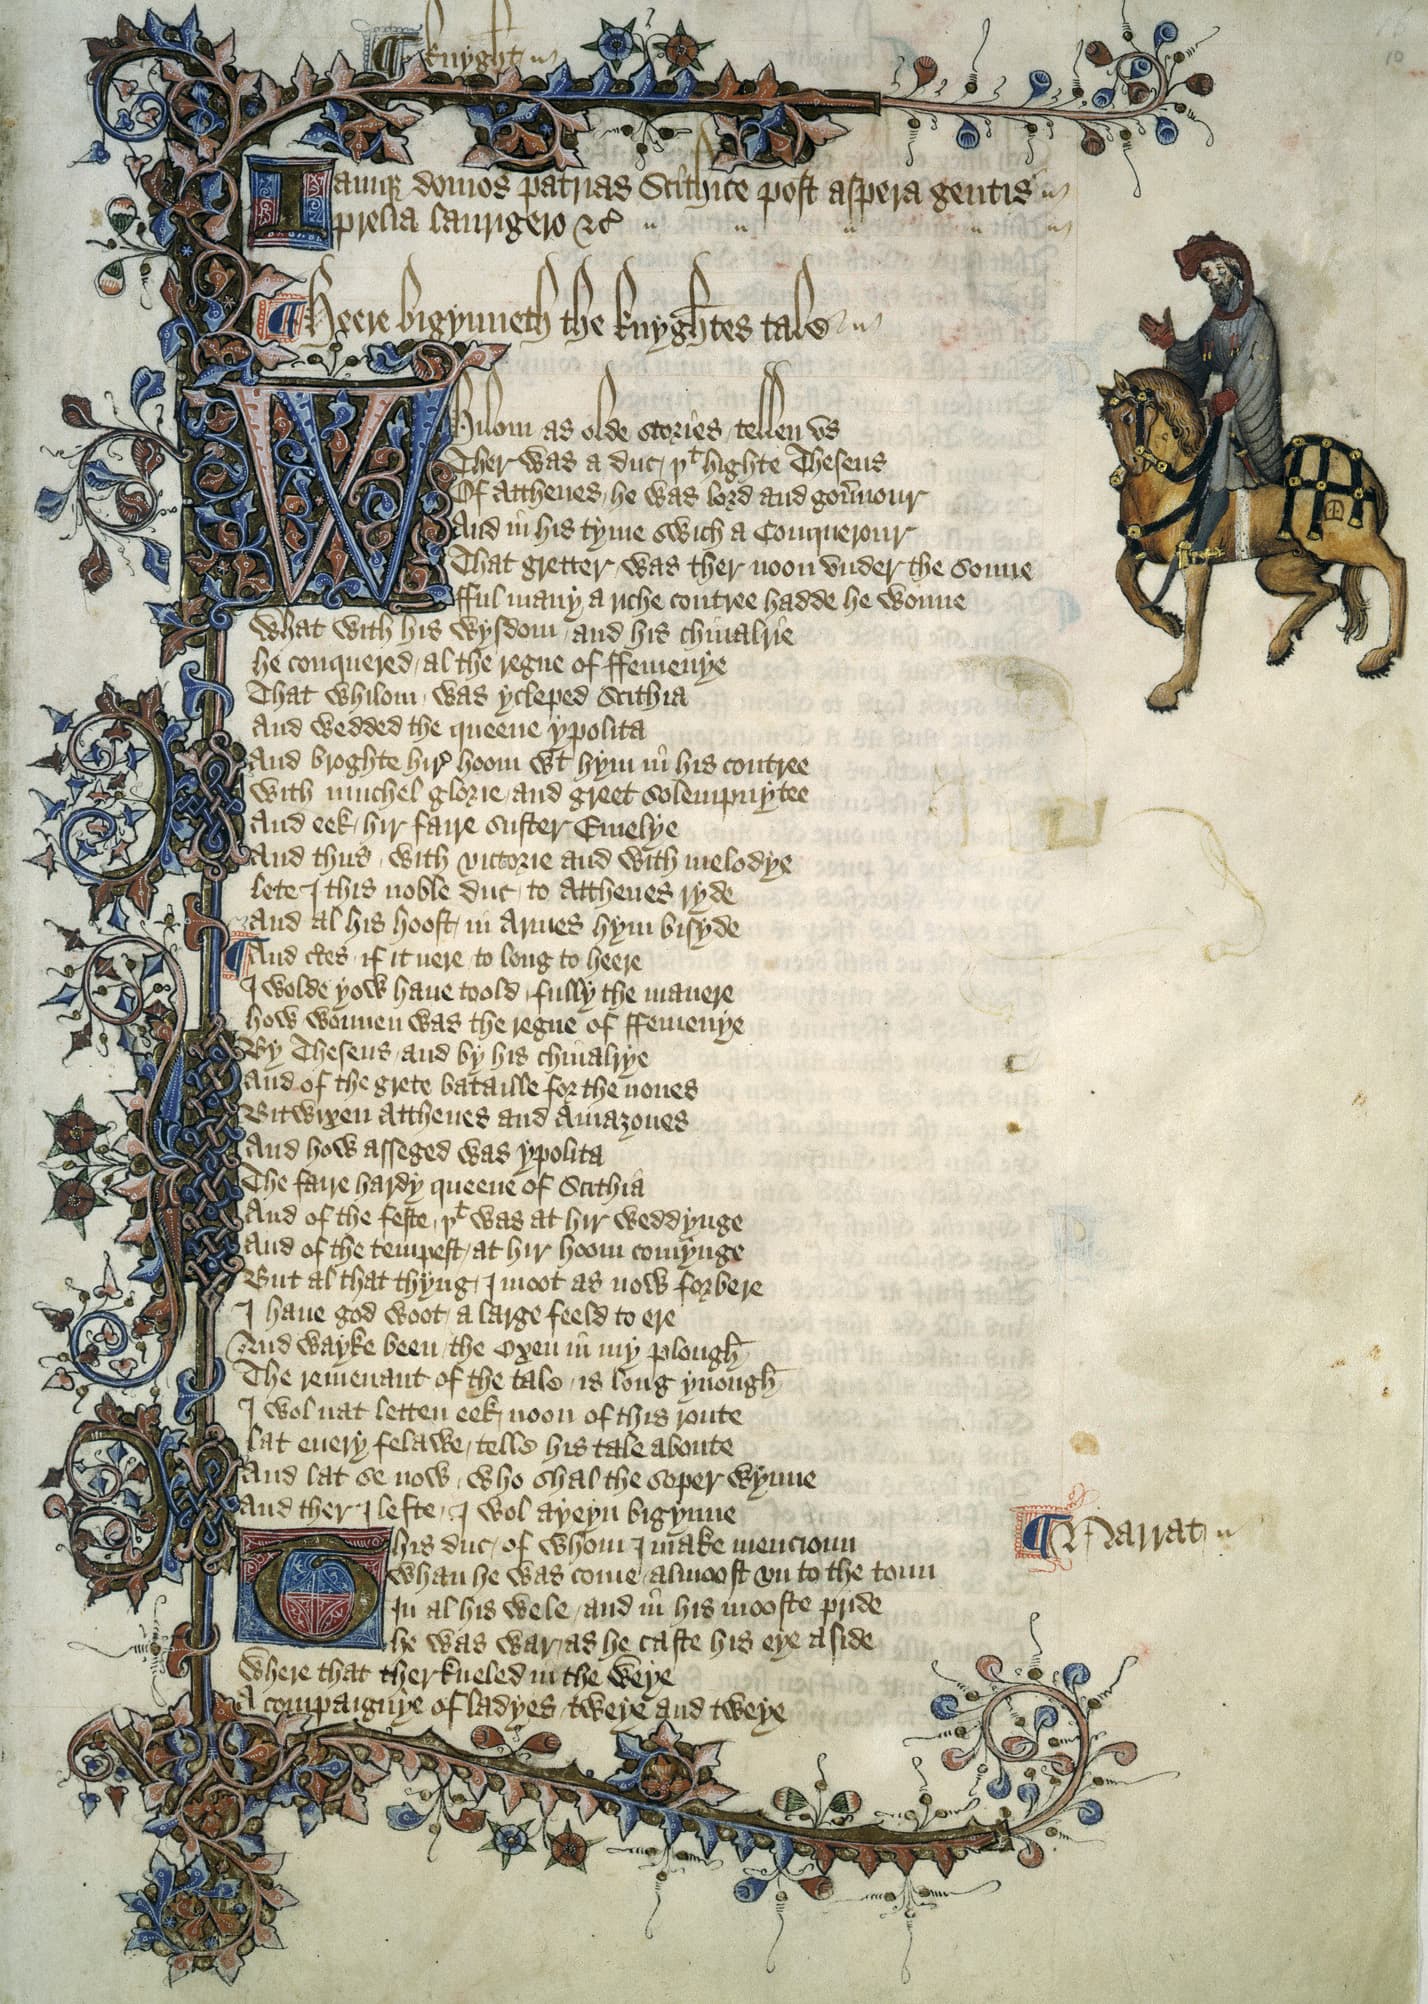 ¶ Knyght
Iamque domos patrias Scithice post aspera gentis
prelia laurigero &c̃
¶ Heere bigynneth the knyghtes tale
Whilom as olde stories tellen vs
Ther was a duc þͭ highte Theseus
Of Atthenes he was lord and gou̾nour
And in his tyme swich a Conquerour
That gretter was ther noon vnder the sonne
fful many a riche contree hadde he wonne
What with his wysdom and his chiualrie
he conquered al the regne of ffemenye
That whilom was ycleped Scithia
And wedded the queene ypolita
And broghte hir hoom wͭ hym in his contree
With muchel glorie and greet solempnytee
And eek hir faire suster Emelye
And thus with victorie and with melodye
lete I this noble duc to Atthenes ryde
And al his hoost in Armes hym bisyde
¶ And c̾tes if it nere to long to heere
I wolde yow haue toold fully the manere
how wonnen was the regne of ffemenye
By Theseus and by his chiualrye
And of the grete bataille for the nones
Bitwixen Atthenes and Amazones
And how asseged was ypolita
The faire hardy queene of Scithia
And of the feste þͭ was at hir weddynge
And of the tempest at hir hoom comynge
But al that thyng I moot as now forbere
I haue god woot a large feeld to ere
And wayke been the Oxen in my plough
The remenant of the tale is long ynough
I wol nat letten eek noon of this route
lat euery felawe telle his tale aboute
And lat se now who shal the soper wynne
And ther I lefte I wol ayeyn bigynne
This duc of whom I make mencioun
Whan he was come almoost vn to the toun
¶ Narrat
In al his wele and in his mooste pride
he was war as he caste his eye aside
Where that ther kneled in the weye
A compaignye of ladyes tweye and tweye
10